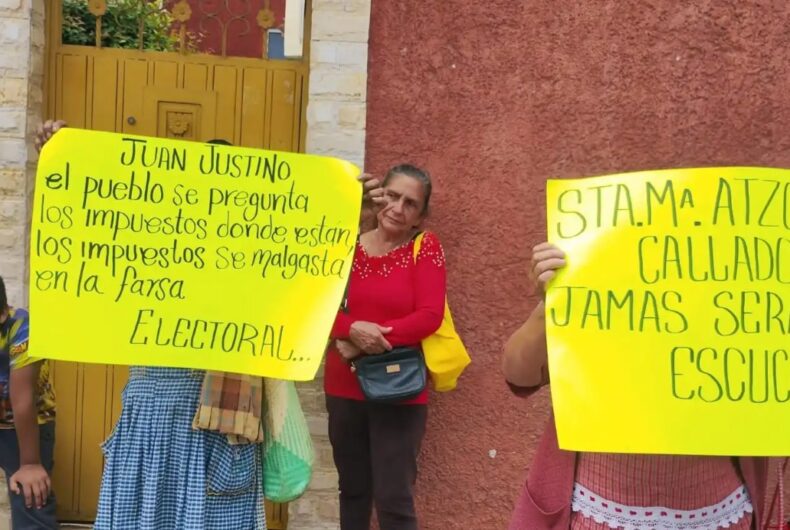 JUAN JUSTINO
el pueblo se pregunta
los impuestos donde están,
los impuestos se malgasta
en la farsa
ELECTORAL...
STA.Mª. ATZO
CALLADO
JAMAS SERA
ESCUC